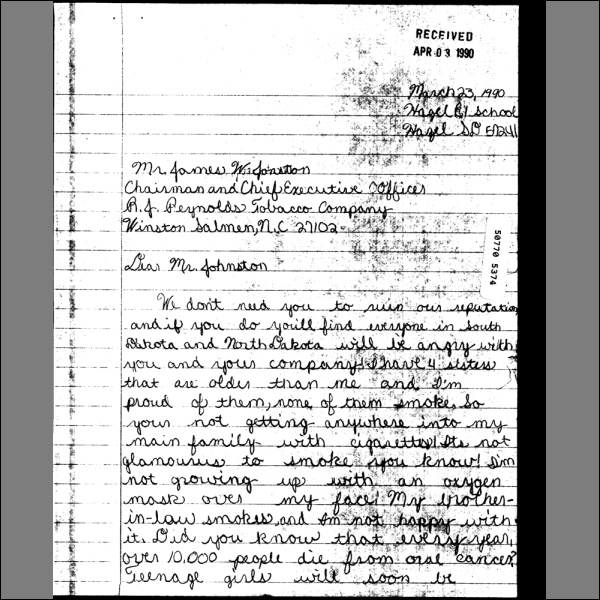 RECEIVED
APR 03 1990
March 23, 1990
Hazel El School
Hazel SD 57241
Mr. James W. Johnston
Chairman and Chief Executive Officer
R.J. Reynolds Tobacco Company
Winston Salmen, N.C 27102
50770 5374
Dear Mr. Johnston
We don't need you to ruin our reputation
and if you do you'll find everyone in South
Dakota and North Dakota will be angry with
you and your company! I have 4 sisters
that are older than me and I'm
proud of them, none of them smoke. So
your not getting anywhere into my
main family with cigarettes! Its not
glamourus to smoke you know! I'm
not growing up with an oxygen
mask over my face! My brother-
in-law smokes, and Im not happy with
it. Did you know that every year,
over 10,000 people die from oral cancer?
Teenage girls will soon be